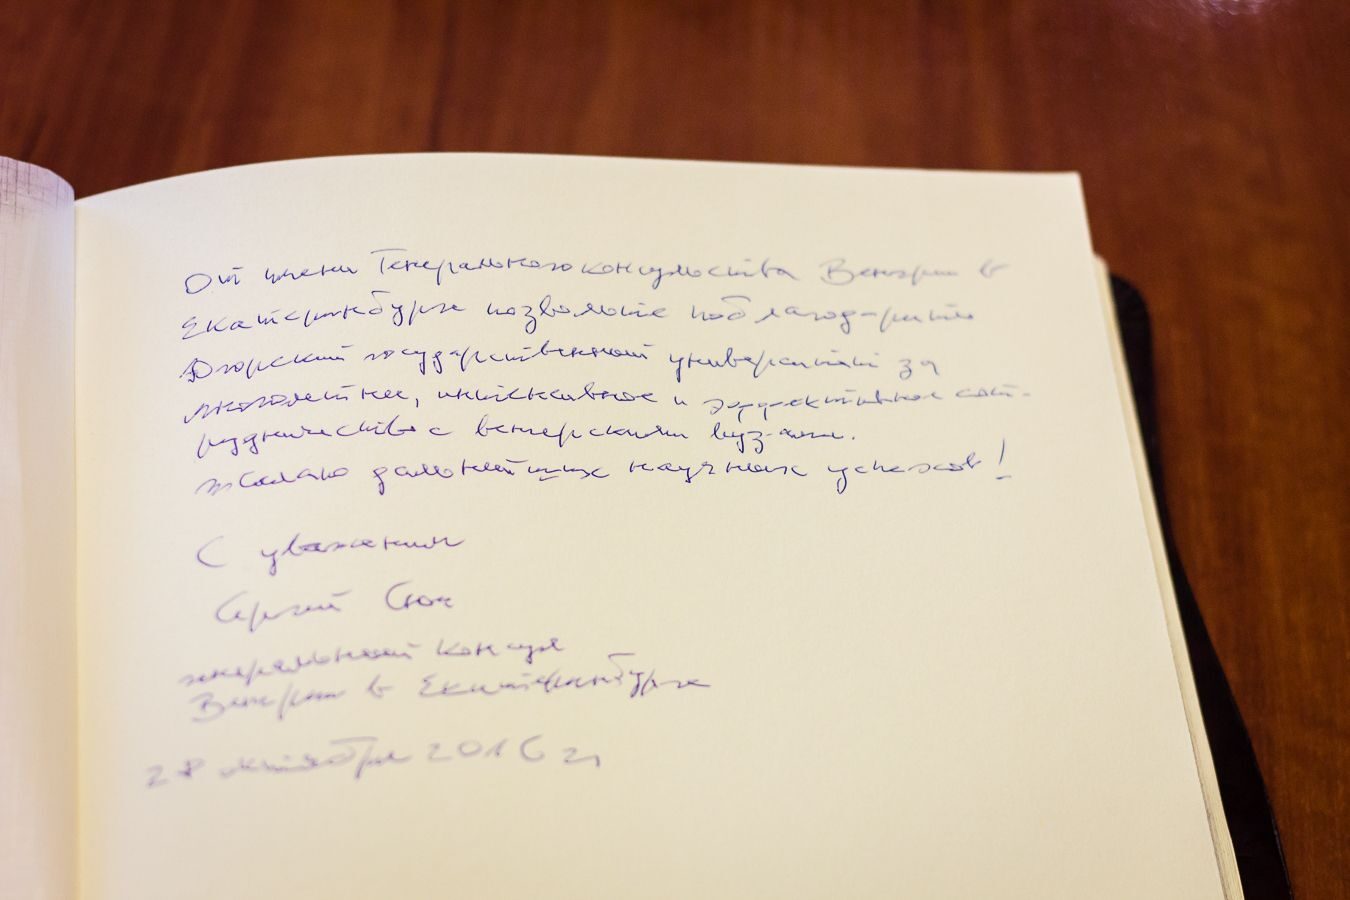 От имени Генерального консульства Венгрии в
Екатеринбурге позвольте поблагодарить
Югорский государственный университет за
многолетнее, интенсивное и эффективное сот-
рудничество с венгерскими вузами.
Желаю дальнейших научных успехов!
С уважением
Сергей Сюч
генеральный консул
Венгрии в Екатеринбурге
28 октября 2016 г.